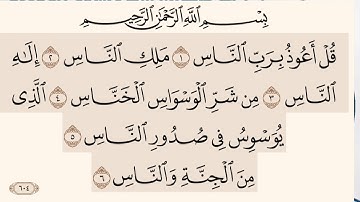 بِسْمِ ٱللَّهِ ٱلرَّحْمَٰنِ ٱلرَّحِيمِ
قُلْ أَعُوذُ بِرَبِّ ٱلنَّاسِ ١ مَلِكِ ٱلنَّاسِ ٢ إِلَٰهِ
ٱلنَّاسِ ٣ مِن شَرِّ ٱلْوَسْوَاسِ ٱلْخَنَّاسِ ٤ ٱلَّذِى
يُوَسْوِسُ فِى صُدُورِ ٱلنَّاسِ ٥
مِنَ ٱلْجِنَّةِ وَٱلنَّاسِ ٦
٦٠٤